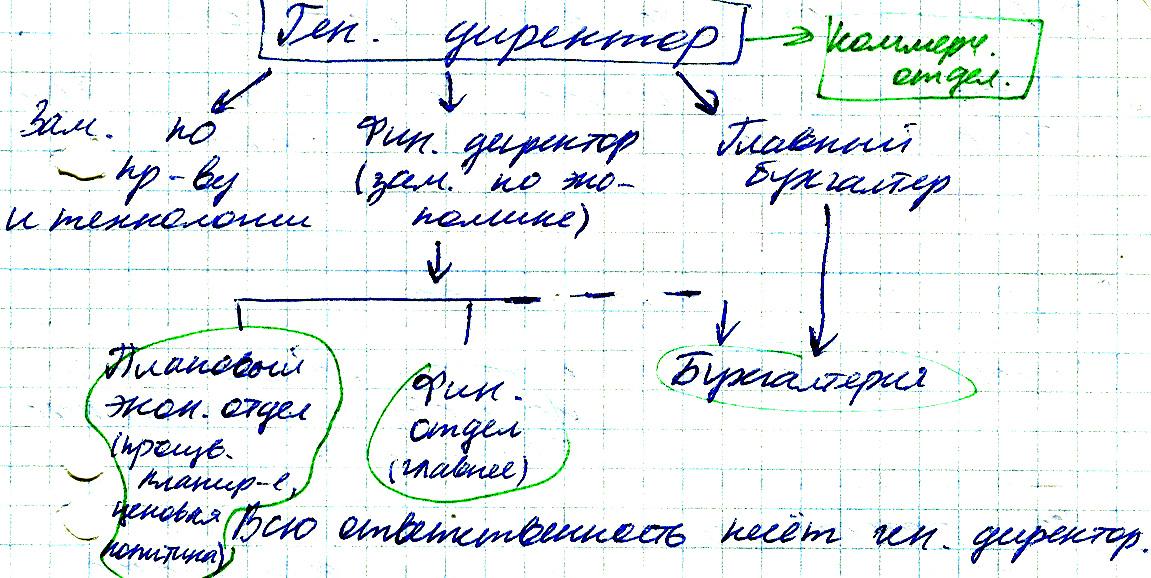 Ген. директор
Коммерч.
отдел.
Зам. по
пр-ву
и технологии
Фин. директор
(зам. по эко-
номике)
Главный
бухгалтер
Плановый
экон. отдел
планир-е,
ценовая
политика)
Фин.
отдел
(главнее)
Бухгалтерия
Всю ответственность несёт ген. директор.